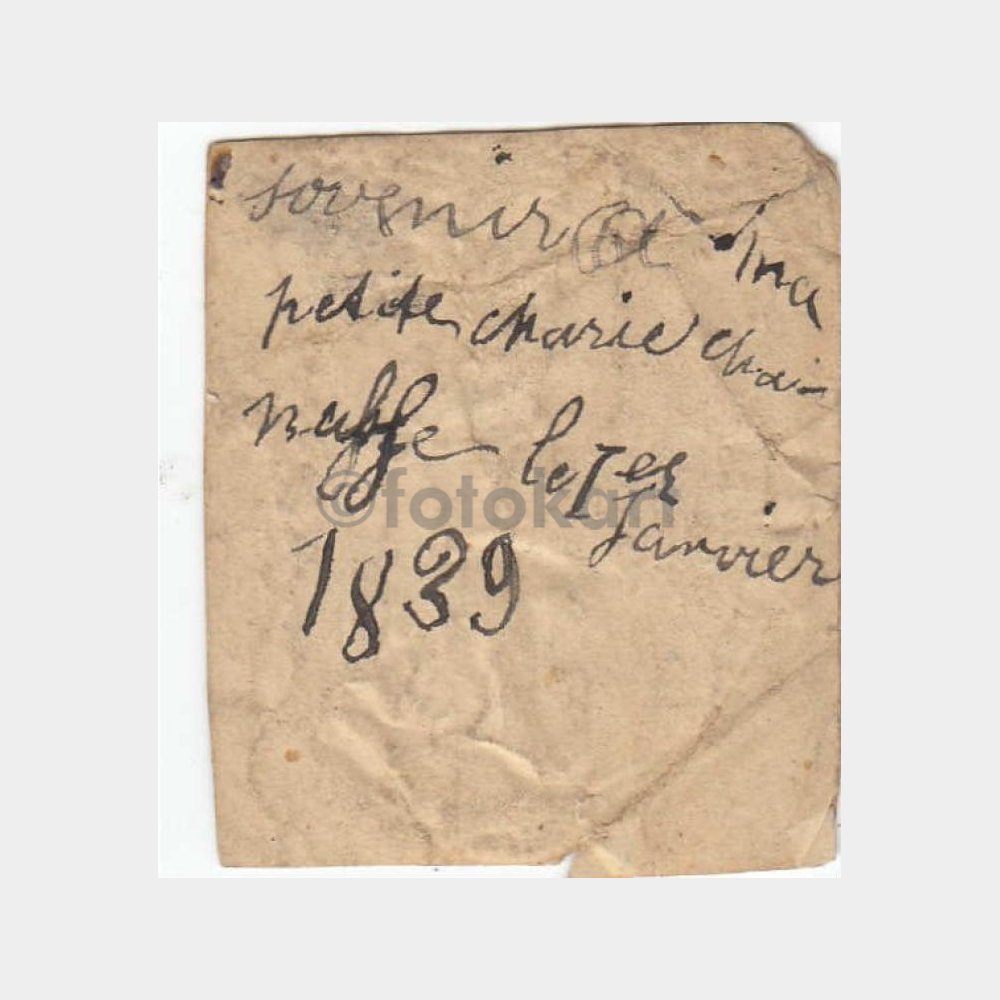 sovenir a ma
petite marie cha-
le 1er
janvier
1839
©fotokarl